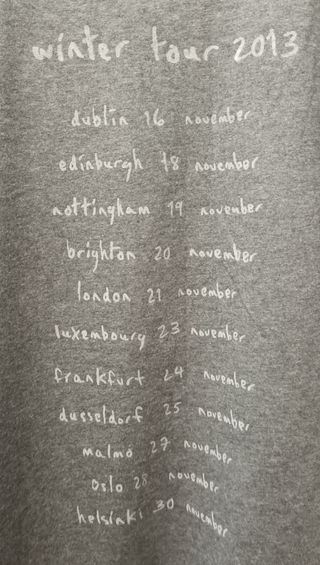 winter tour 2013
dublin 16 november
edinburgh 18 november
nottingham 19 november
brighton 20 november
london 21 november
luxembourg 23 november
frankfurt 24 november
dusseldorf 25 november
malmö 27 november
oslo 28 november
helsinki 30 november